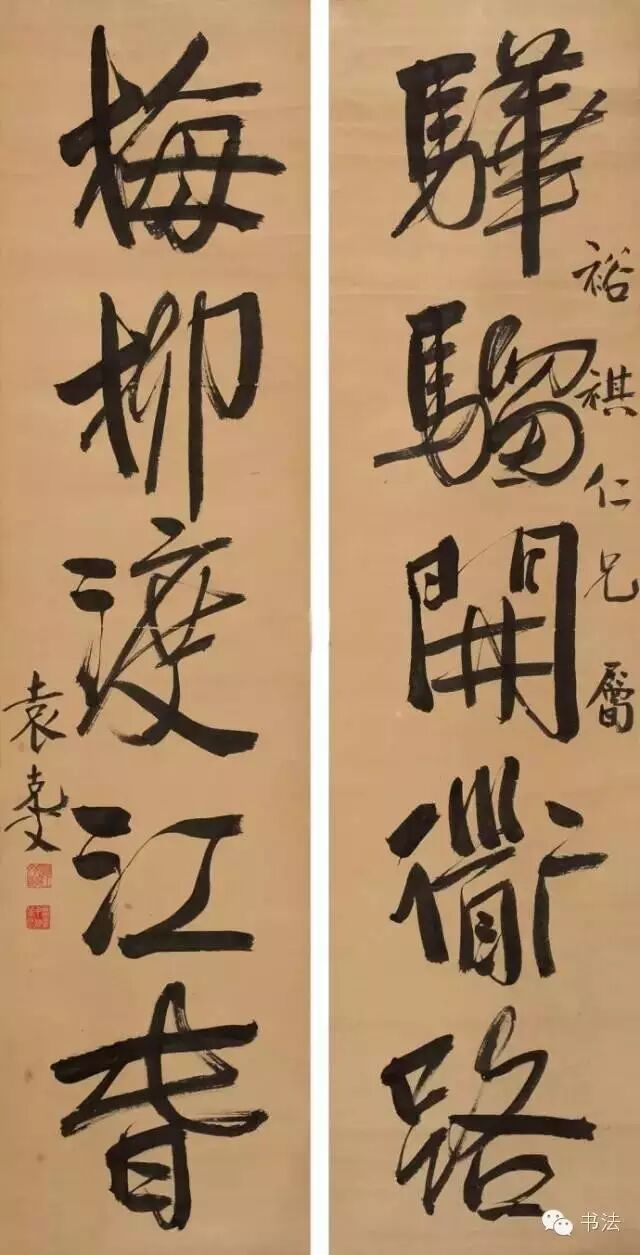 裕祺仁兄屬
驊騮開衟路
梅柳渡江春
袁克文
书法